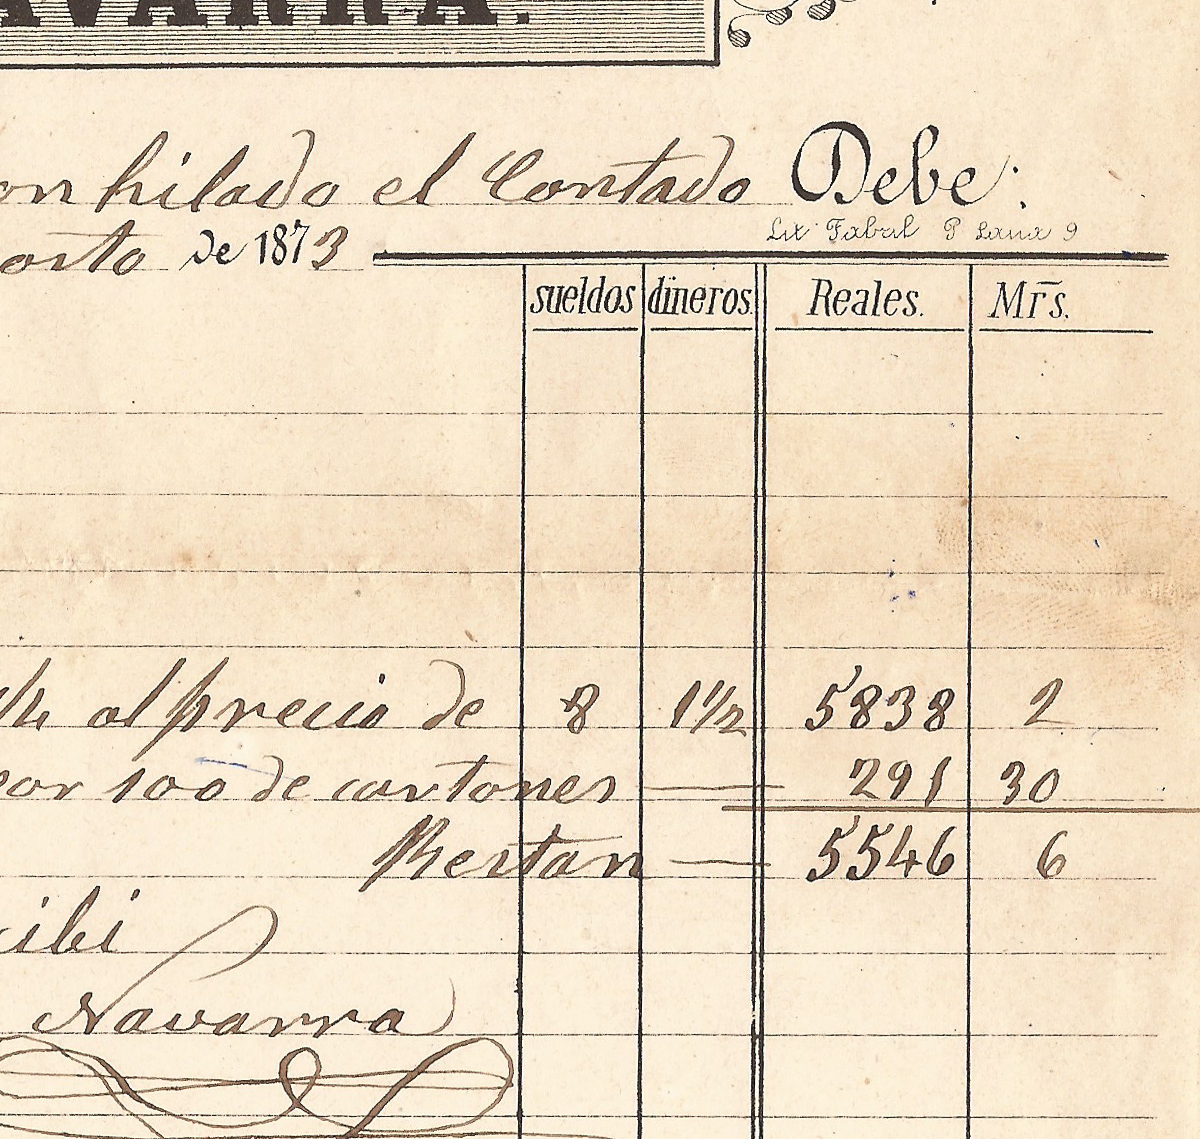 AVARRA.
on hilado el Contado Debe:
Lit Fabral P Lana 9
osto de 1873
sueldos dineros. Reales. Mrs.
al precio de 8 1 1/2 5838 2
por 100 de cartones — 291 30
Restan — 5546 6
cibi
Navarra